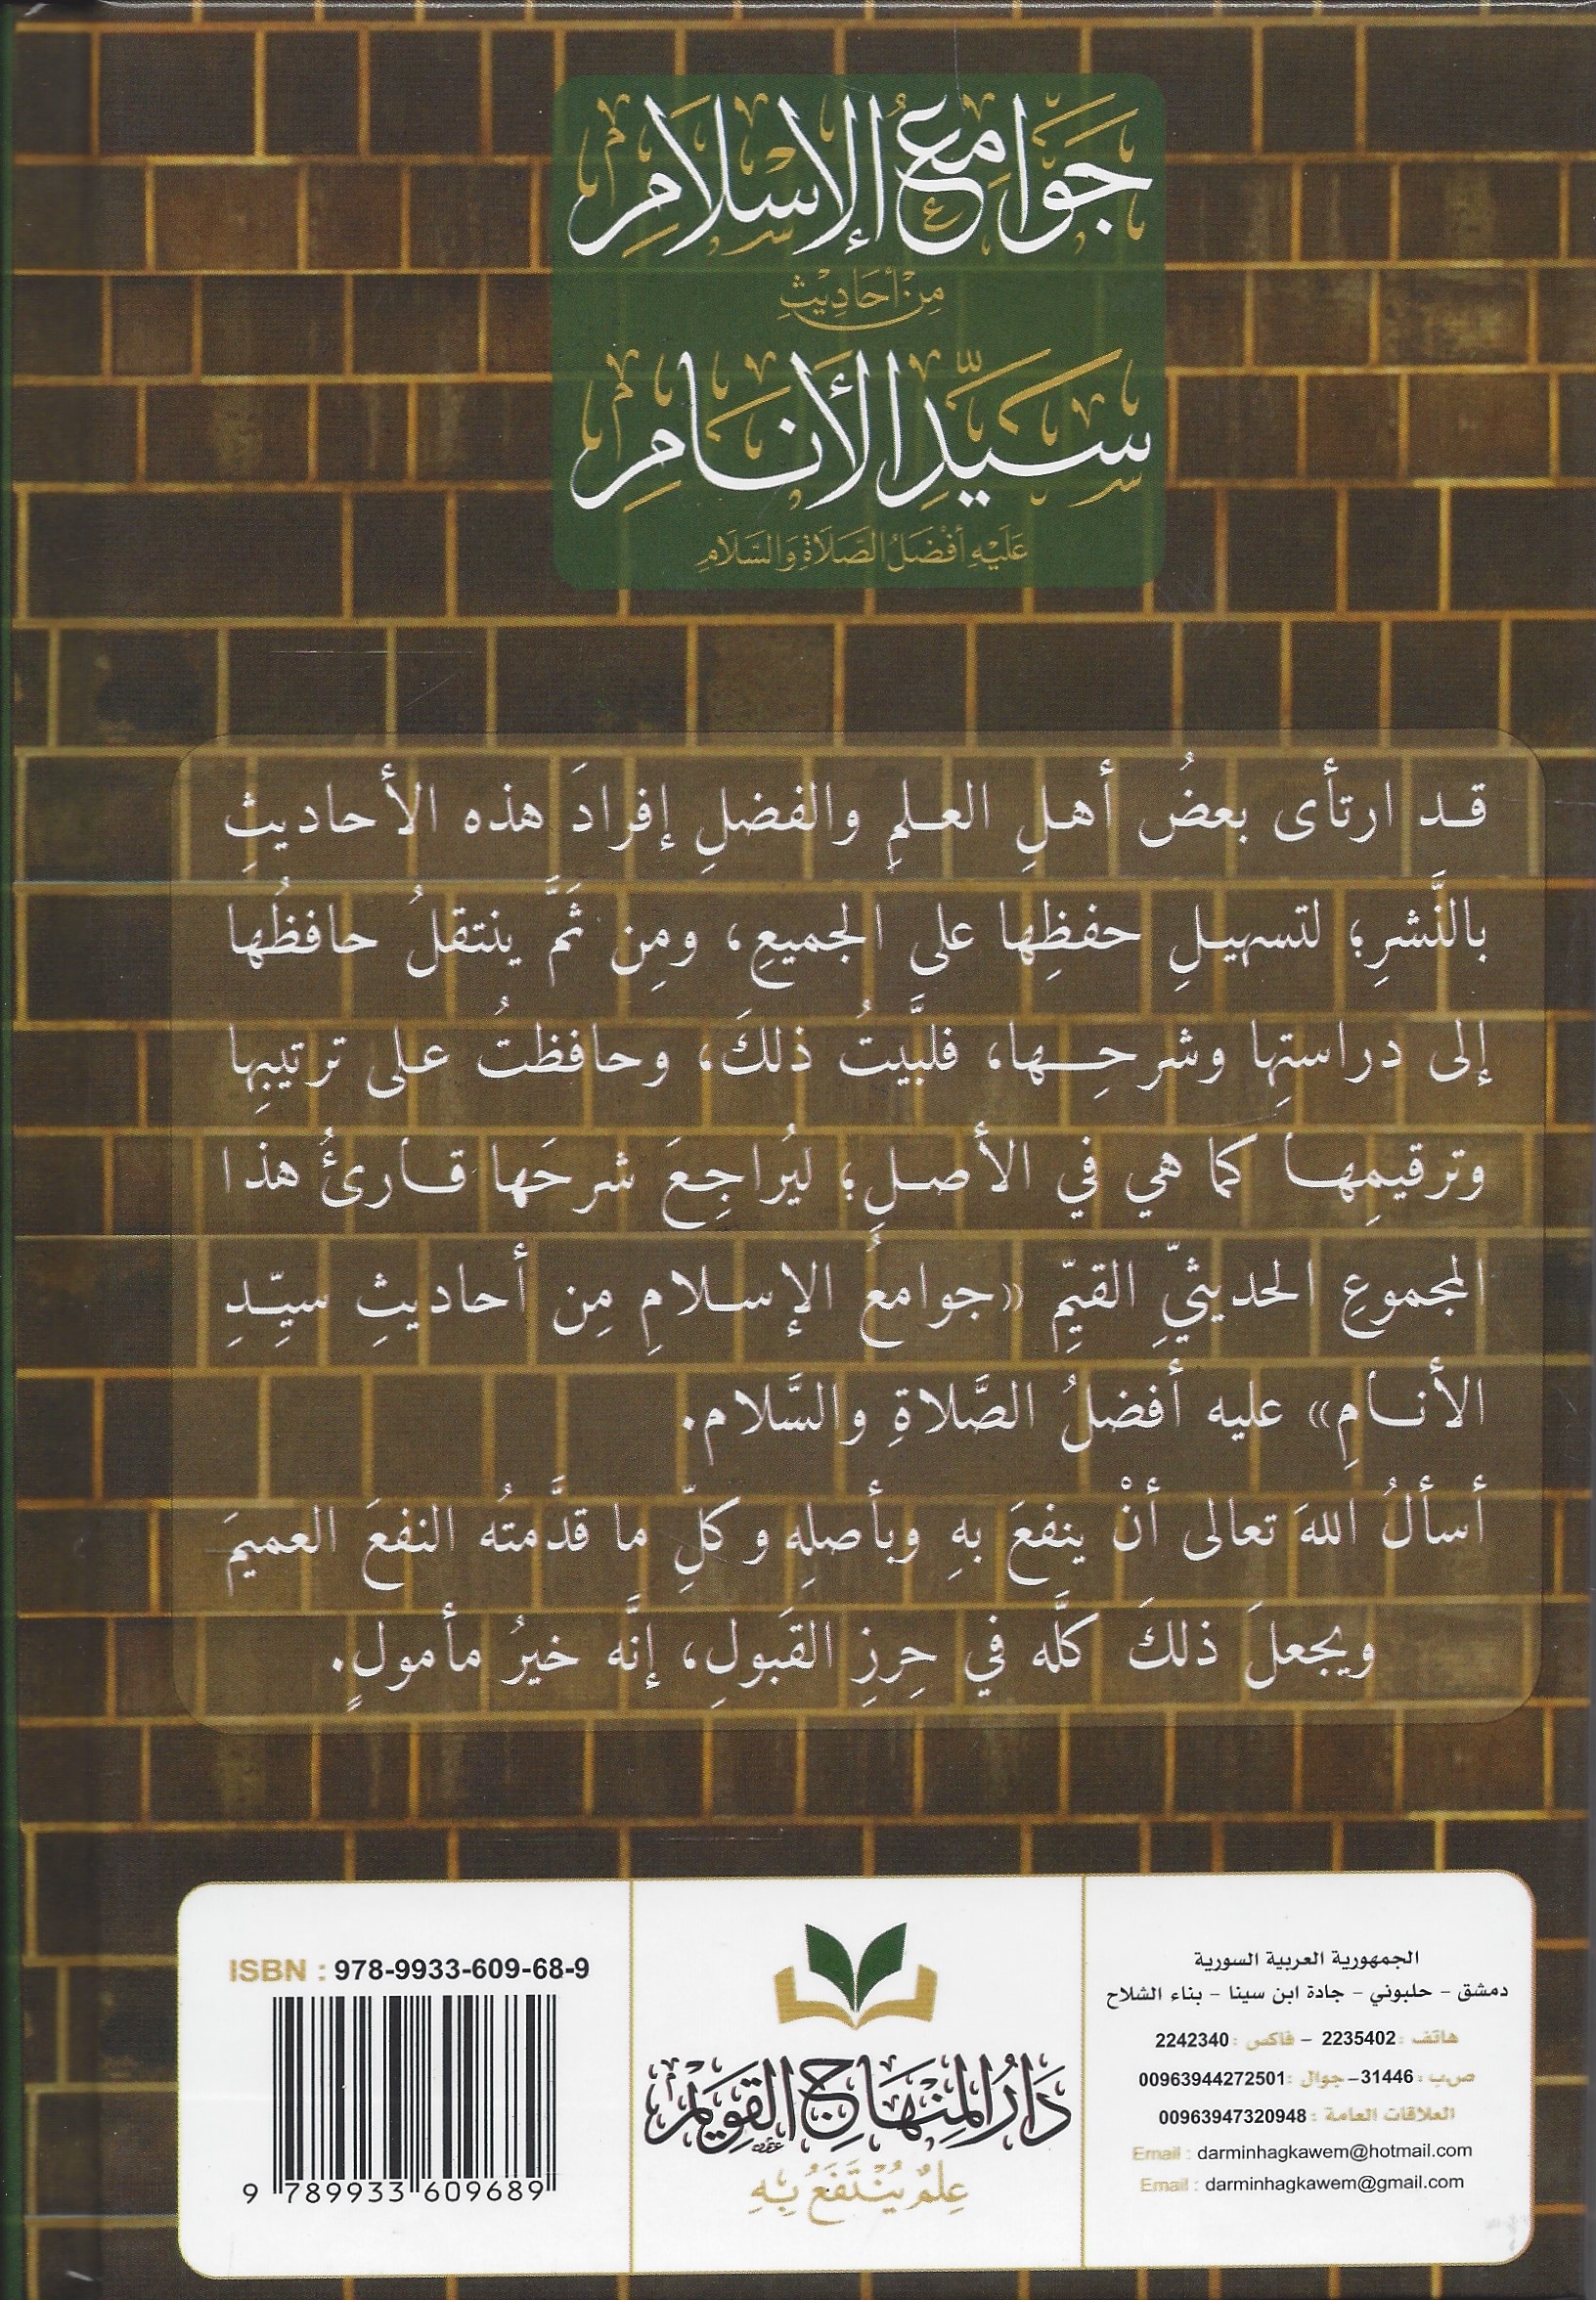 جَوَامِعُ الإِسْلَامِ
مِنْ أَحَادِيْثِ
سَيِّدِ الأَنَامِ
عَلَيْهِ أَفْضَلُ الصَّلَاةِ وَالسَّلَامِ
قد ارتأى بعضُ أهلِ العلمِ والفضلِ إفرادَ هذه الأحاديثِ
بالنَّشرِ؛ لتسهيلِ حفظِها على الجميعِ، ومِن ثَمَّ ينتقلُ حافظُها
إلى دراستِها وشرحِها، فلبَّيتُ ذلكَ، وحافظتُ على ترتيبِها
وترقيمِها كما هي في الأصلِ؛ ليُراجِعَ شرحَها قارئُ هذا
المجموعِ الحديثيِّ القيِّمِ «جوامعُ الإسلامِ مِن أحاديثِ سيِّدِ
الأنامِ» عليه أفضلُ الصَّلاةِ والسَّلام.
أسألُ اللهَ تعالى أنْ ينفعَ بهِ وبأصلِهِ وكلِّ ما قدَّمتُه النفعَ العميمَ
ويجعلَ ذلكَ كلَّه في حِرزِ القَبولِ، إنَّه خيرُ مأمولٍ.
الجمهورية العربية السورية
دمشق - حلبوني - جادة ابن سينا - بناء الشلاح
هاتف : 2235402 - فاكس : 2242340
ص.ب : 31446 - جوال : 00963944272501
العلاقات العامة : 00963947320948
Email : darminhagkawem@hotmail.com
Email : darminhagkawem@gmail.com
دَارُ المِنْهَاجِ القَوِيْمِ
عِلمٌ يُنْتَفَعُ بِهِ
ISBN : 978-9933-609-68-9
9 789933 609689